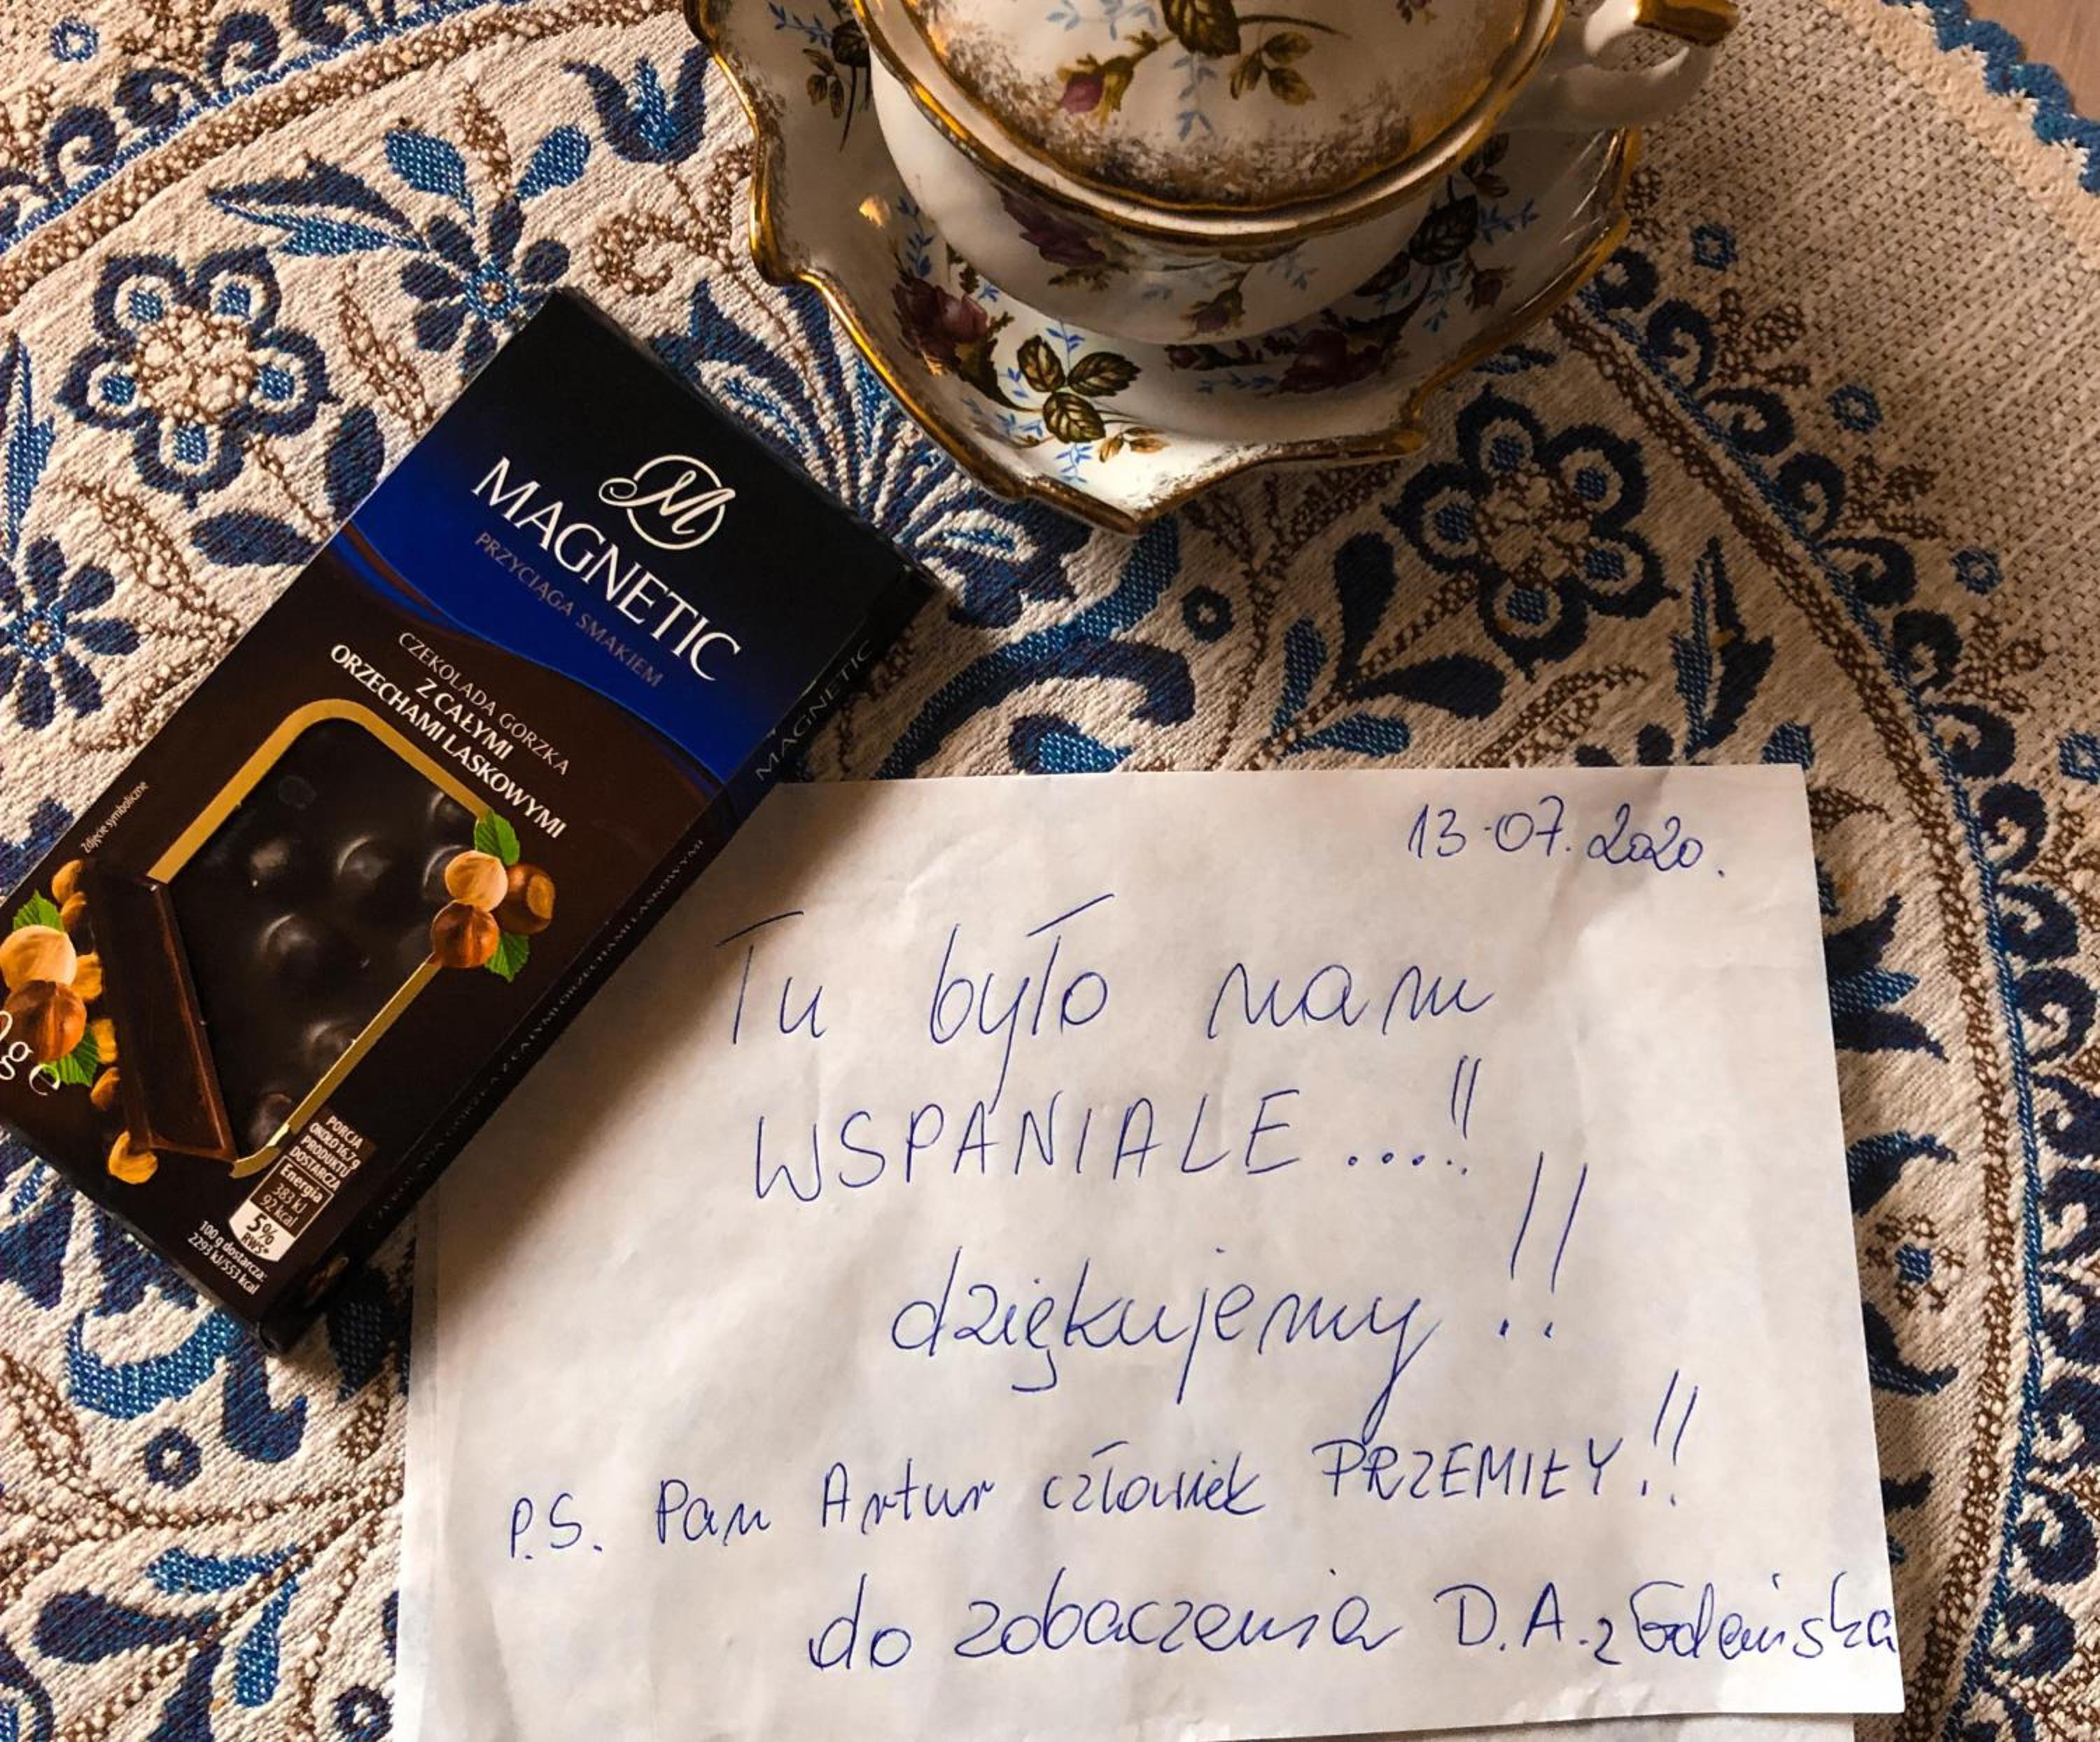 M
MAGNETIC
PRZYCIĄGA SMAKIEM
CZEKOLADA GORZKA
Z CAŁYMI
ORZECHAMI LASKOWYMI
Zdjęcie symboliczne
g e
PORCJA
OKOŁO 16,7 g
PRODUKTU
DOSTARCZA
Energia
383 kJ
92 kcal
5%
RWS*
100 g dostarcza:
2293 kJ/553 kcal
MAGNETIC
CZEKOLADA GORZKA Z CAŁYMI ORZECHAMI LASKOWYMI
13.07.2020.
Tu było nam
WSPANIALE....!!
dziękujemy!!
P.S. Pan Artur człowiek PRZEMIŁY!!
do zobaczenia D.A. z Gdańska